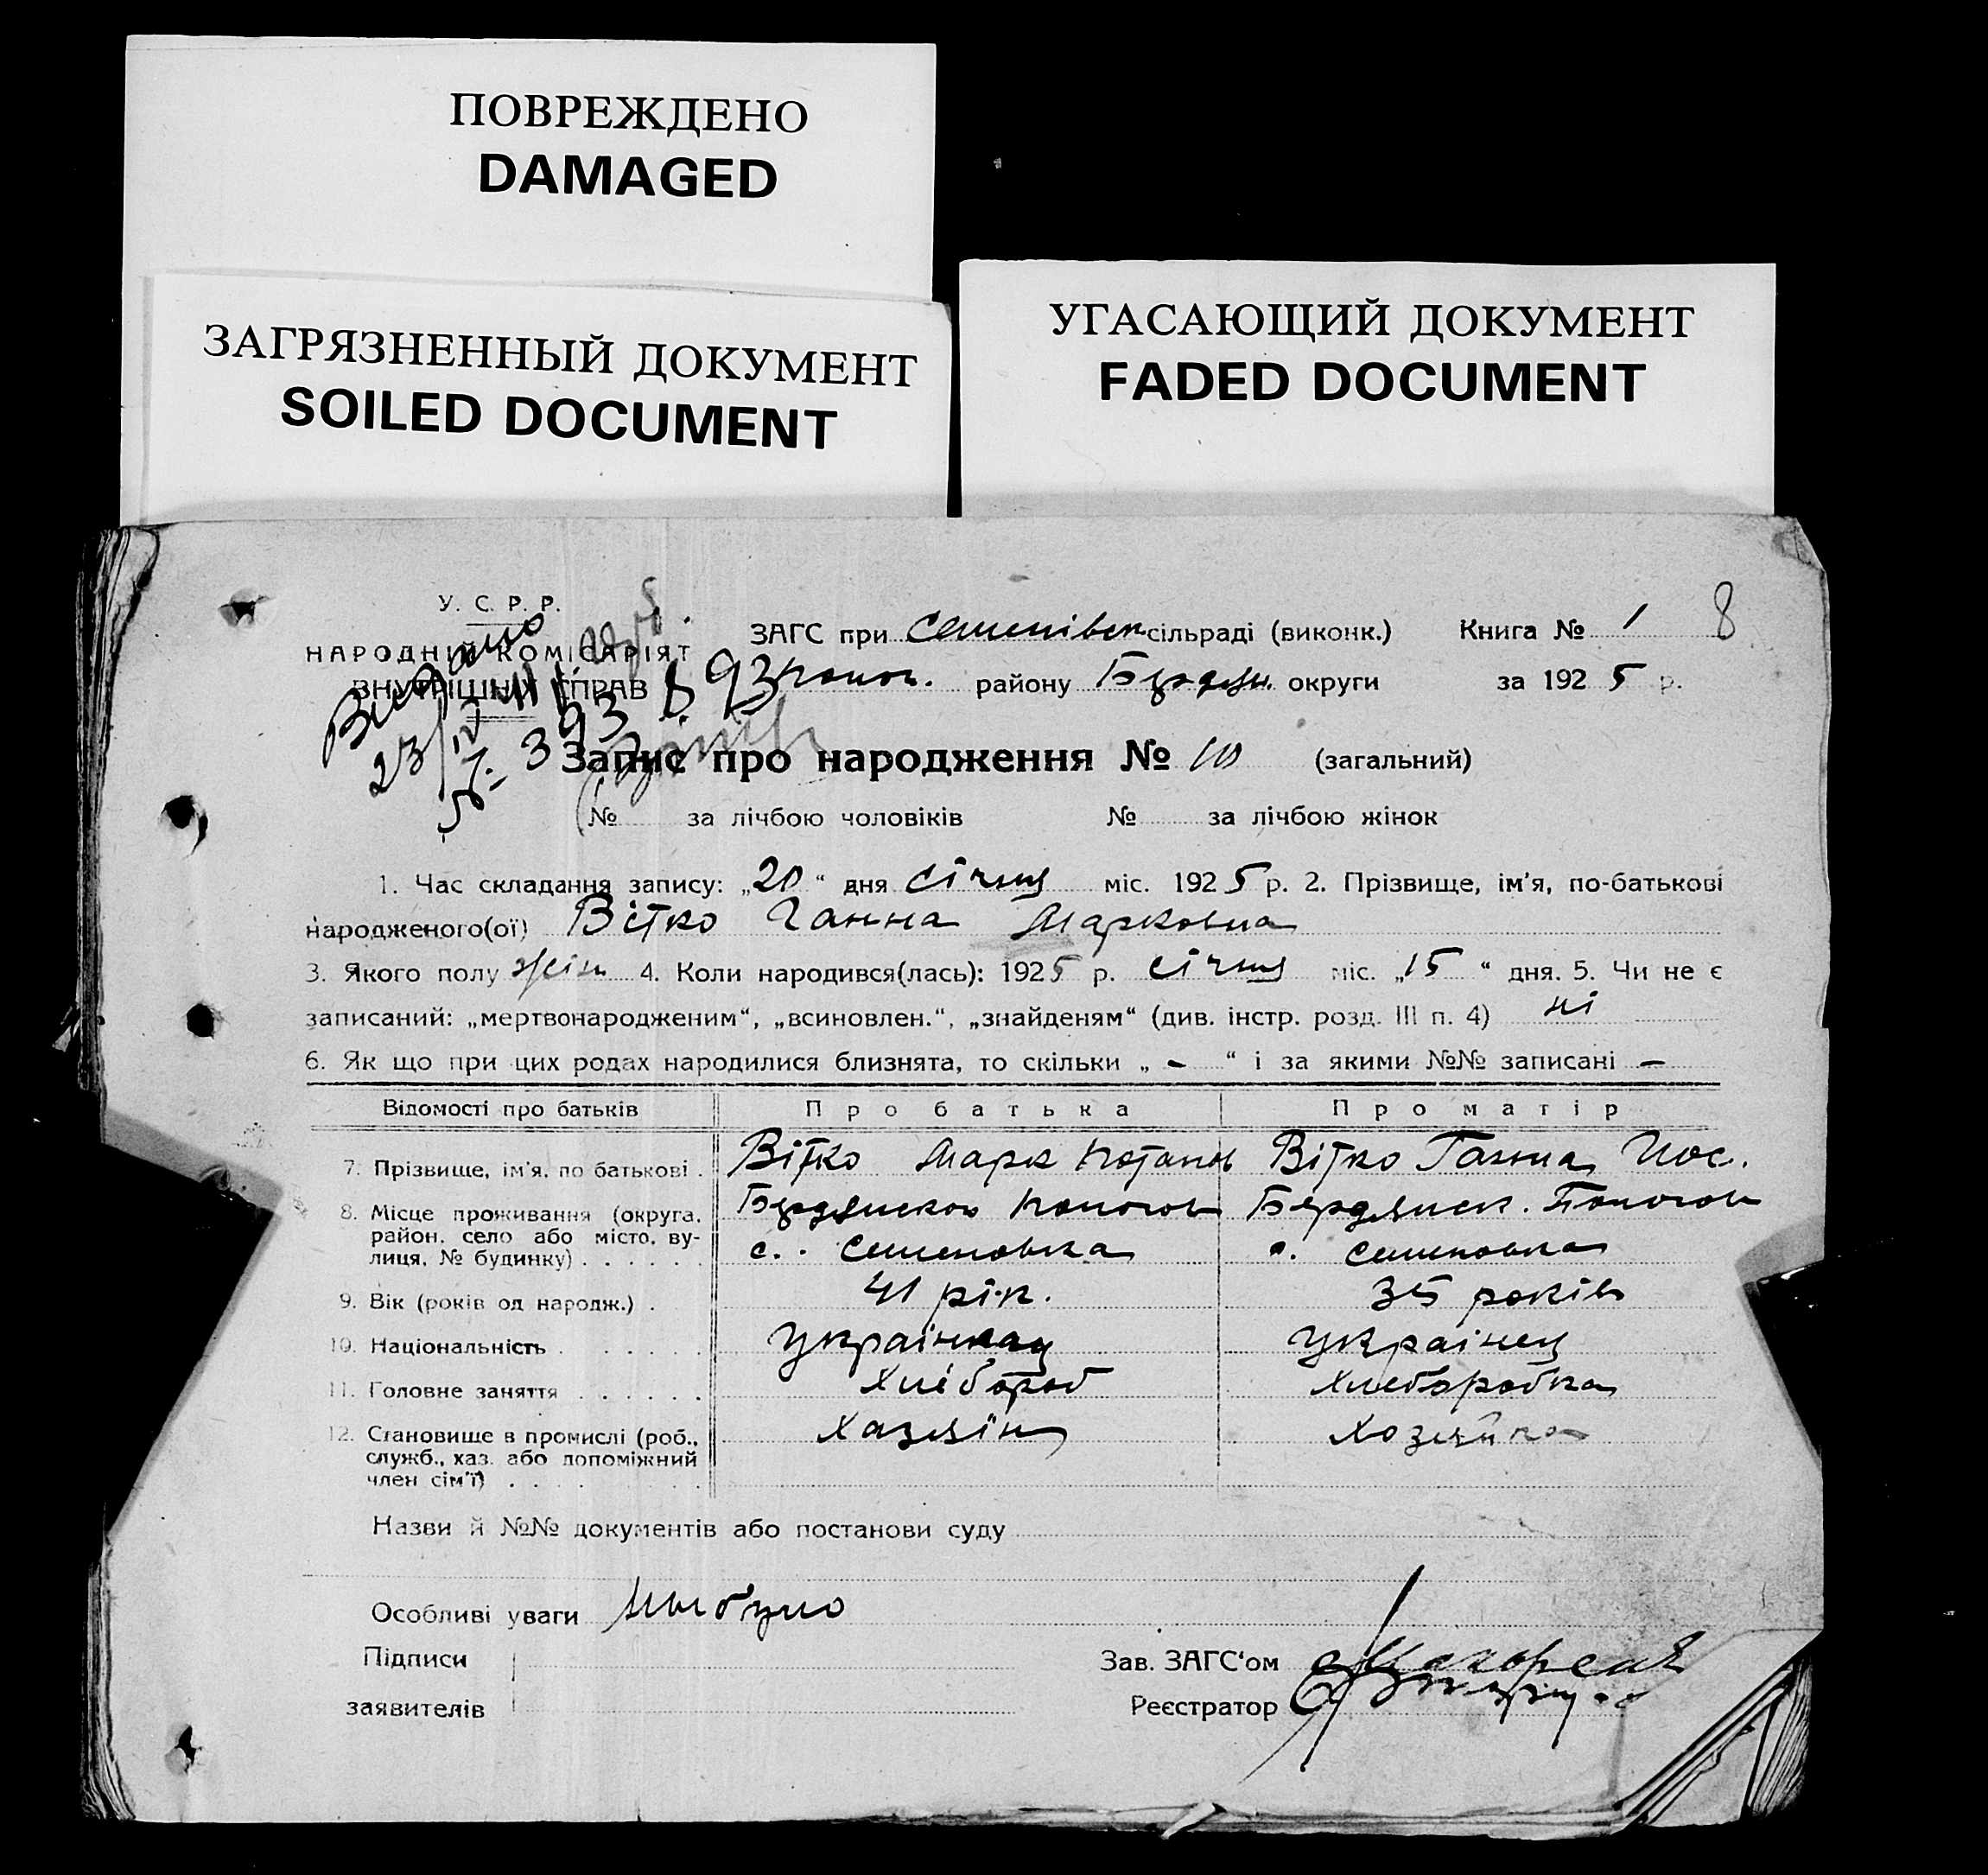 ПОВРЕЖДЕНО
DAMAGED
ЗАГРЯЗНЕННЫЙ ДОКУМЕНТ
SOILED DOCUMENT
УГАСАЮЩИЙ ДОКУМЕНТ
FADED DOCUMENT
У. С. Р. Р.
НАРОДНИЙ КОМІСАРІЯТ
ВНУТРІШНІХ СПРАВ
Видано
23/IV
ЗАГС при Семенівск сільраді (виконк.) Книга № 1 8
району Бердян. округи за 1925 р.
Запис про народження № 10 (загальний)
№ за лічбою чоловіків № за лічбою жінок
1. Час складання запису: „20“ дня січня міс. 1925 р. 2. Прізвище, ім'я, по-батькові
народженого(ої) Вітко Ганна Марковна
3. Якого полу жін 4. Коли народився(лась): 1925 р. січня міс. „15“ дня. 5. Чи не є
записаний: „мертвонародженим“, „всиновлен.“, „знайденям“ (див. інстр. розд. III п. 4) ні
6. Як що при цих родах народилися близнята, то скільки „ - “ і за якими №№ записані -
Відомості про батьків Про батька Про матір
7. Прізвище, ім'я, по батькові . Вітко Марк Вітко Ганна Иос.
8. Місце проживання (округа, Бердянскою Пологов Бердянск. Пологов
район, село або місто, ву- с. Семеновка с. Семеновка
лиця, № будинку) . . . . . .
9. Вік (років од народж.) . 41 рік. 35 років
10. Національність . . . . . . українец
11. Головне заняття . . . . . . Хлібороб Хлеборобка
12. Становище в промислі (роб., Хазяїн Хозяйка
служб., хаз. або допоміжний
член сім'ї) . . . . . . .
Назви й №№ документів або постанови суду
Особливі уваги
Підписи
заявителів
Зав. ЗАГС'ом
Реєстратор